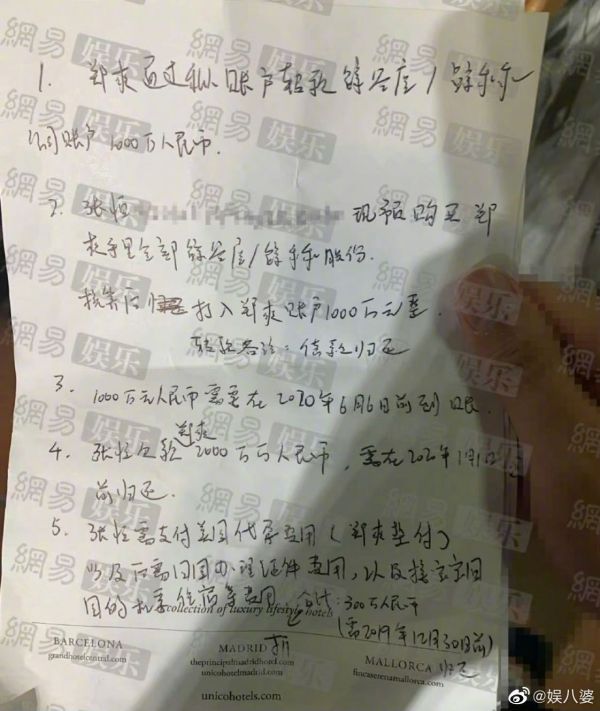 1. 郑爽通过私人账户转款锋谷度/锋乐乐
公司账户1000万人民币.
2. 张恒 现币购买郑
爽手里全部锋谷度/锋乐乐股份.
打入郑爽账户1000万元整.
转账备注：借款归还
3. 1000万元人民币需要在2020年6月6日前到账.
郑爽
4. 张恒欠款2000万人民币，需在202 年1月1日
前归还.
5. 张恒需支付美国代孕费用（郑爽垫付）
以及后离门国办理证件费用，以及接宝宝回
国的机票住宿等费用，合计：300万人民币
collection of luxury lifestyle hotels
（需2019年12月30日前）
归还
BARCELONA
grandhotelcentral.com
MADRID
theprincipalmadridhotel.com
unicohotelmadrid.com
MALLORCA
fincaserenamallorca.com
unicohotels.com
網易娱乐
@娱八婆